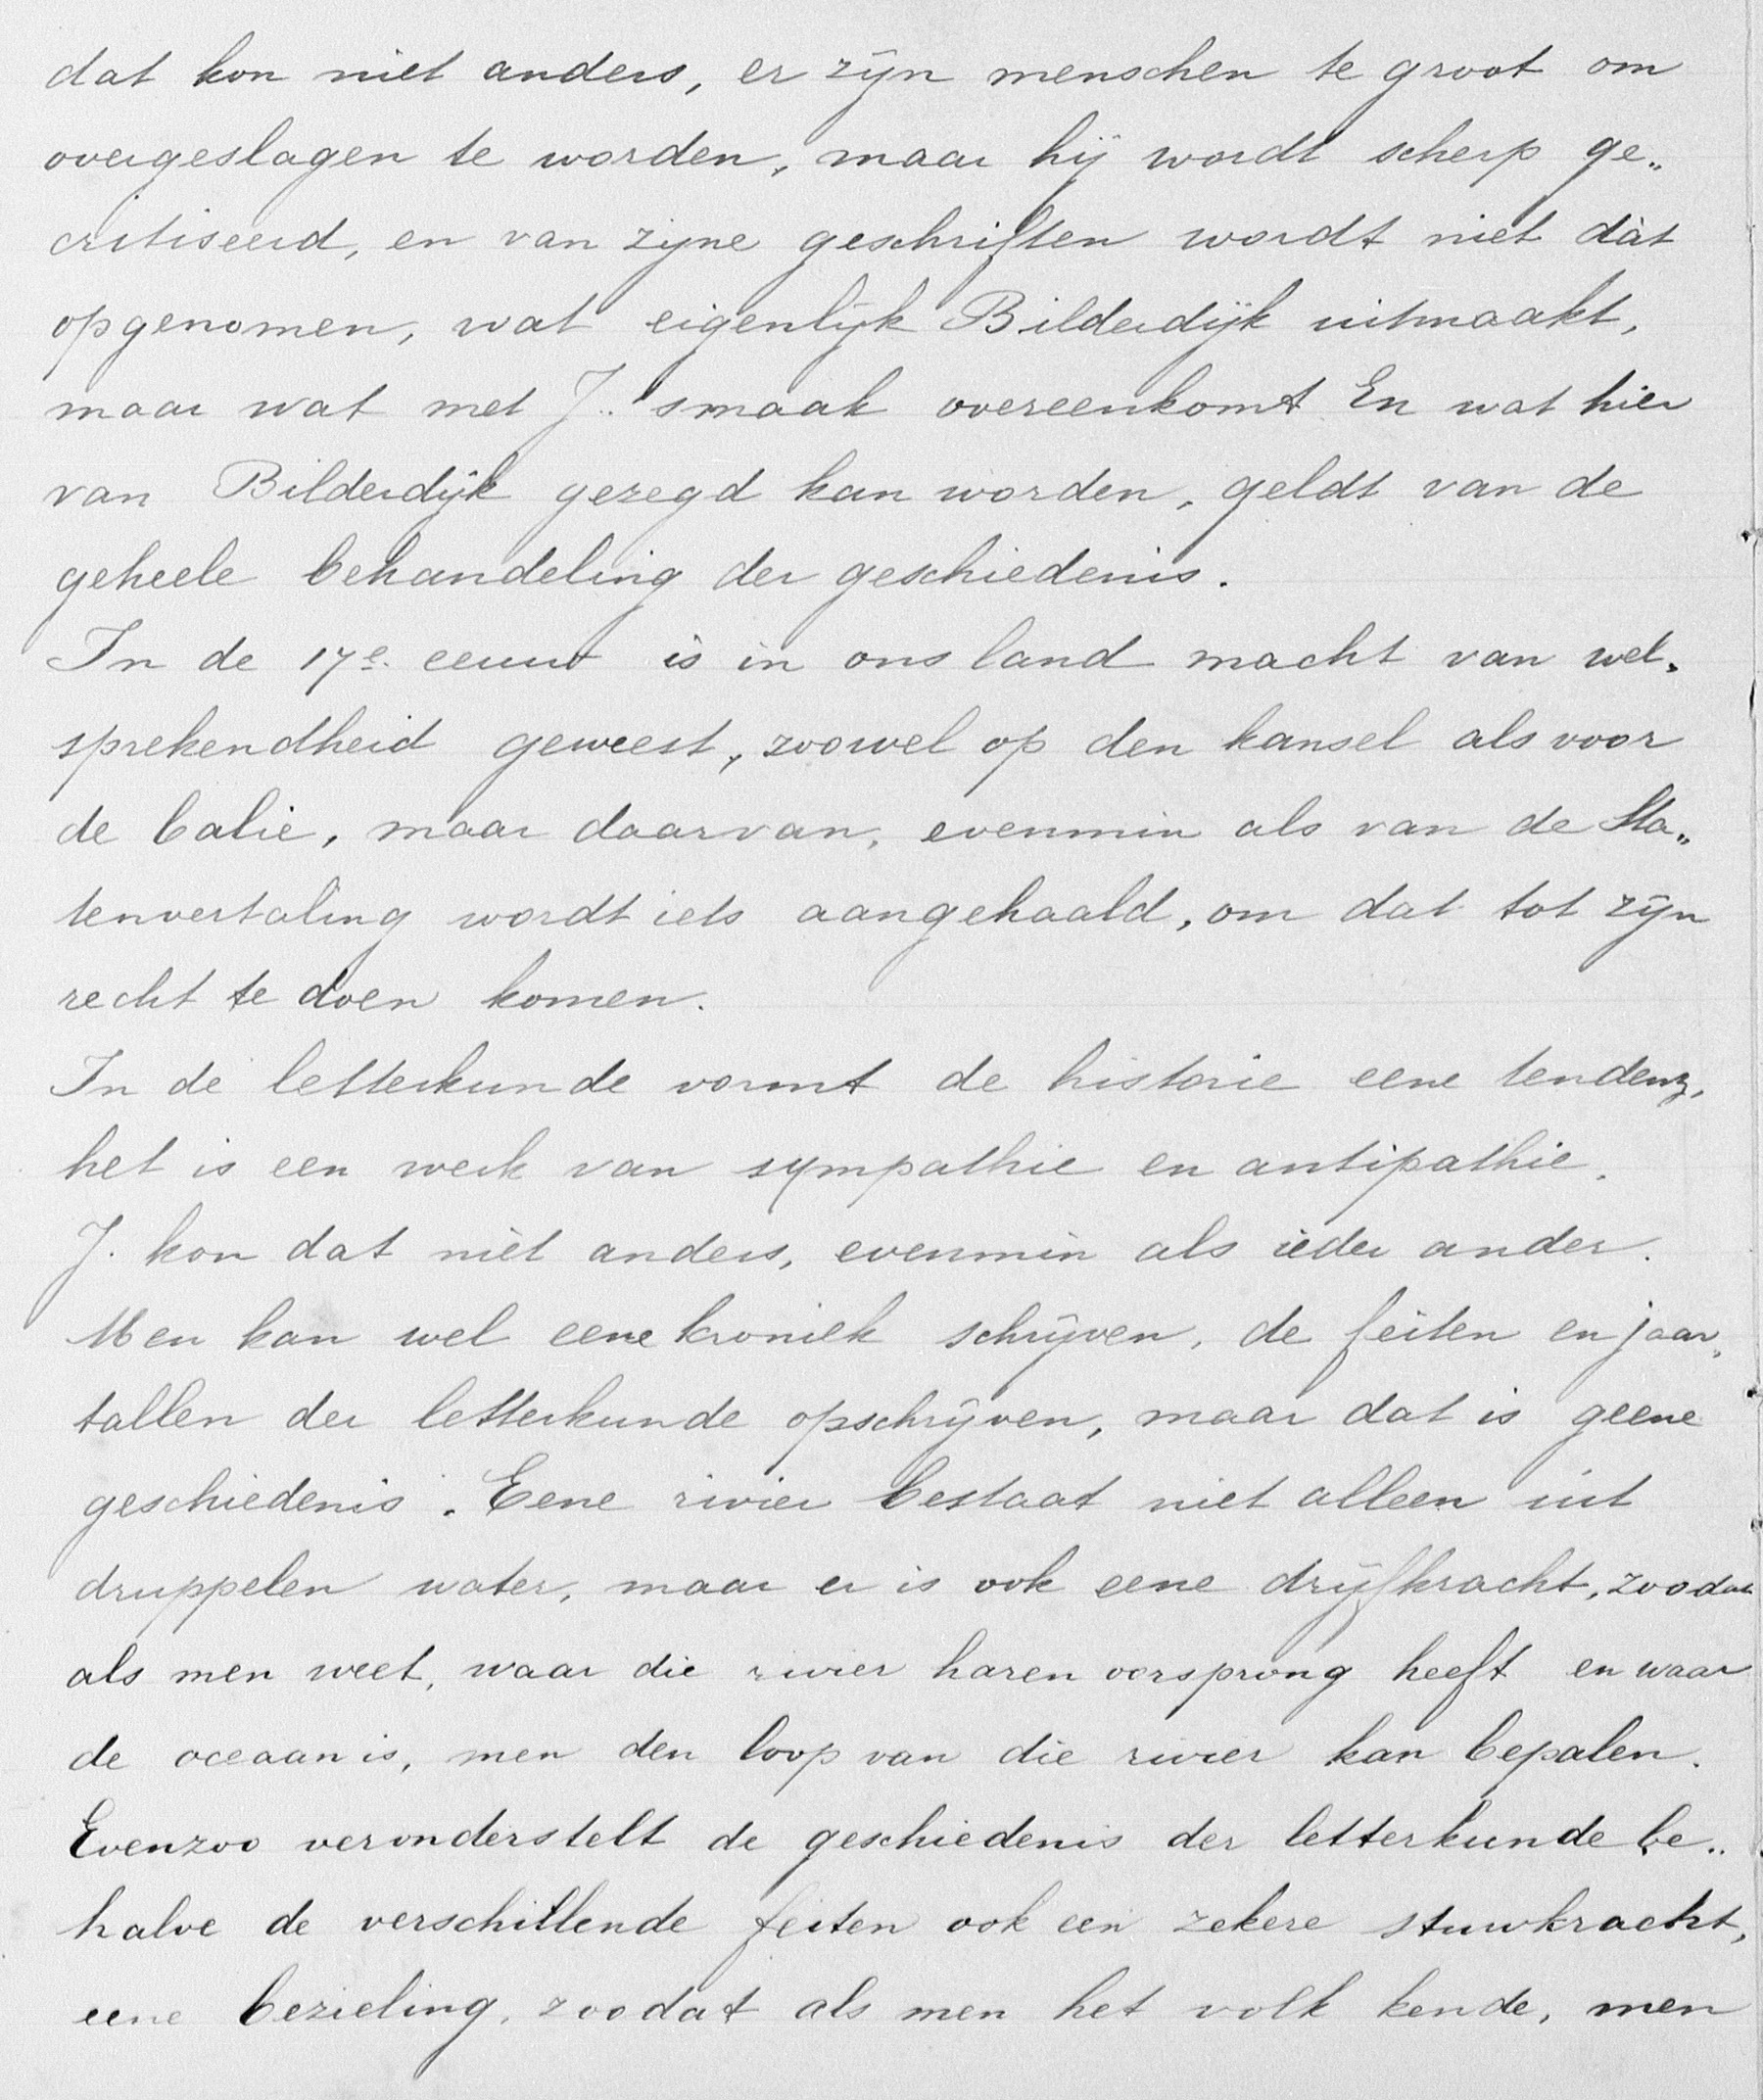 dat kon niet anders, er zijn menschen te groot om
overgeslagen te worden, maar hij wordt scherp ge„
critiseerd, en van zijne geschriften wordt niet dàt
opgenomen, wat eigenlijk Bilderdijk uitmaakt,
maar wat met J.. smaak overeenkomt. En wat hier
van Bilderdijk gezegd kan worden, geldt van de
geheele behandeling der geschiedenis.
In de 17e eeuw is in ons land macht van wel„
sprekendheid geweest, zoowel op den kansel als voor
de balie, maar daarvan, evenmin als van de Sta„
tenvertaling wordt iets aangehaald, om dat tot zijn
recht te doen komen.
In de letterkunde vormt de historie eene tendenz,
het is een werk van sympathie en antipathie.
J. kon dat niet anders, evenmin als ieder ander.
Men kan wel eene kroniek schrijven, de feiten en jaar„
tallen der letterkunde opschrijven, maar dat is geene
geschiedenis. Eene rivier bestaat niet alleen uit
druppelen water, maar er is ook eene drijfkracht, zoodat
als men weet, waar die rivier haren oorsprong heeft en waar
de oceaan is, men den loop van die rivier kan bepalen.
Evenzoo veronderstelt de geschiedenis der letterkunde be„
halve de verschillende feiten ook een zekere stuwkracht,
eene bezieling, zoodat als men het volk kende, men